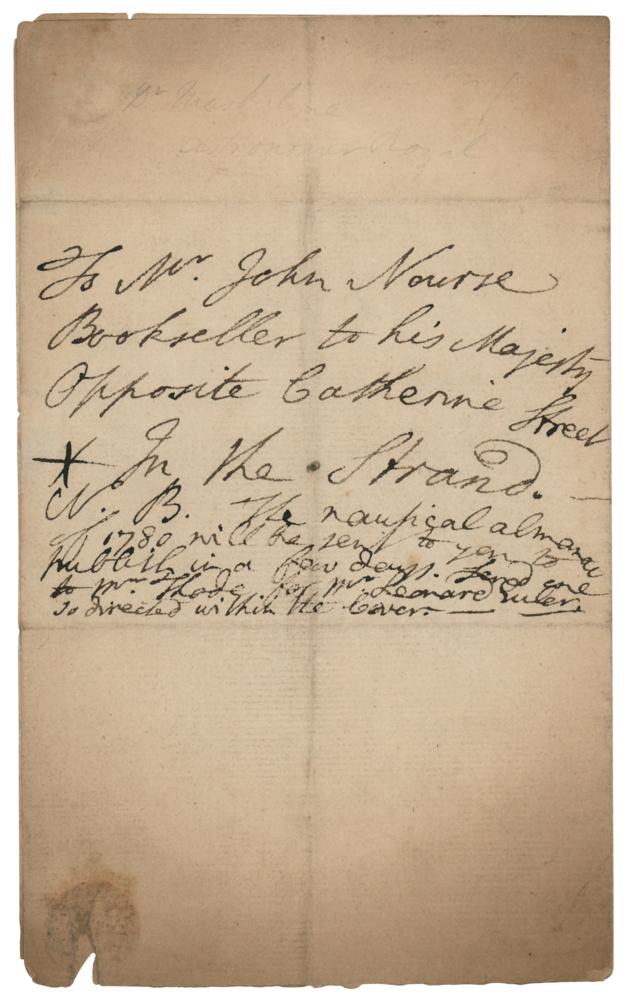 Dr Maskelyne
astronomer Royal
To Mr. John Nourse
Bookseller to his Majesty
Opposite Catherine Street
X In the Strand. —
N. B. The nautical almanac
of 1780 will be sent to you to
publish in a few days. Send one
to Mr. for Mr Leonard Euler,
so directed within the Cover. —